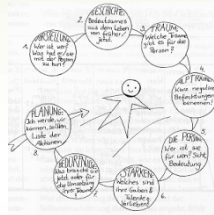 1.
VORSTELLUNG:
Wer ist wer?
Was hat er/sie
mit der Person
zu tun?
2.
GESCHICHTE:
Bedeutsames
aus dem Leben
von früher/
jetzt.
3.
TRAUM:
Welche Träume
gibt es für die
Person?
4.
ALPTRAUM:
Kurz negative
Befürchtungen
benennen!
5.
DIE PERSON:
Wer ist sie
für wen? Sicht,
Bedeutung
6.
STÄRKEN:
Welches sind
ihre Gaben &
Talente
7.
BEDÜRFNISSE:
Was braucht sie
jetzt oder für
die Umsetzung
ihrer Träume?
8.
PLANUNG:
Ich werde, wir
können, sollten
Liste der
Aktionen